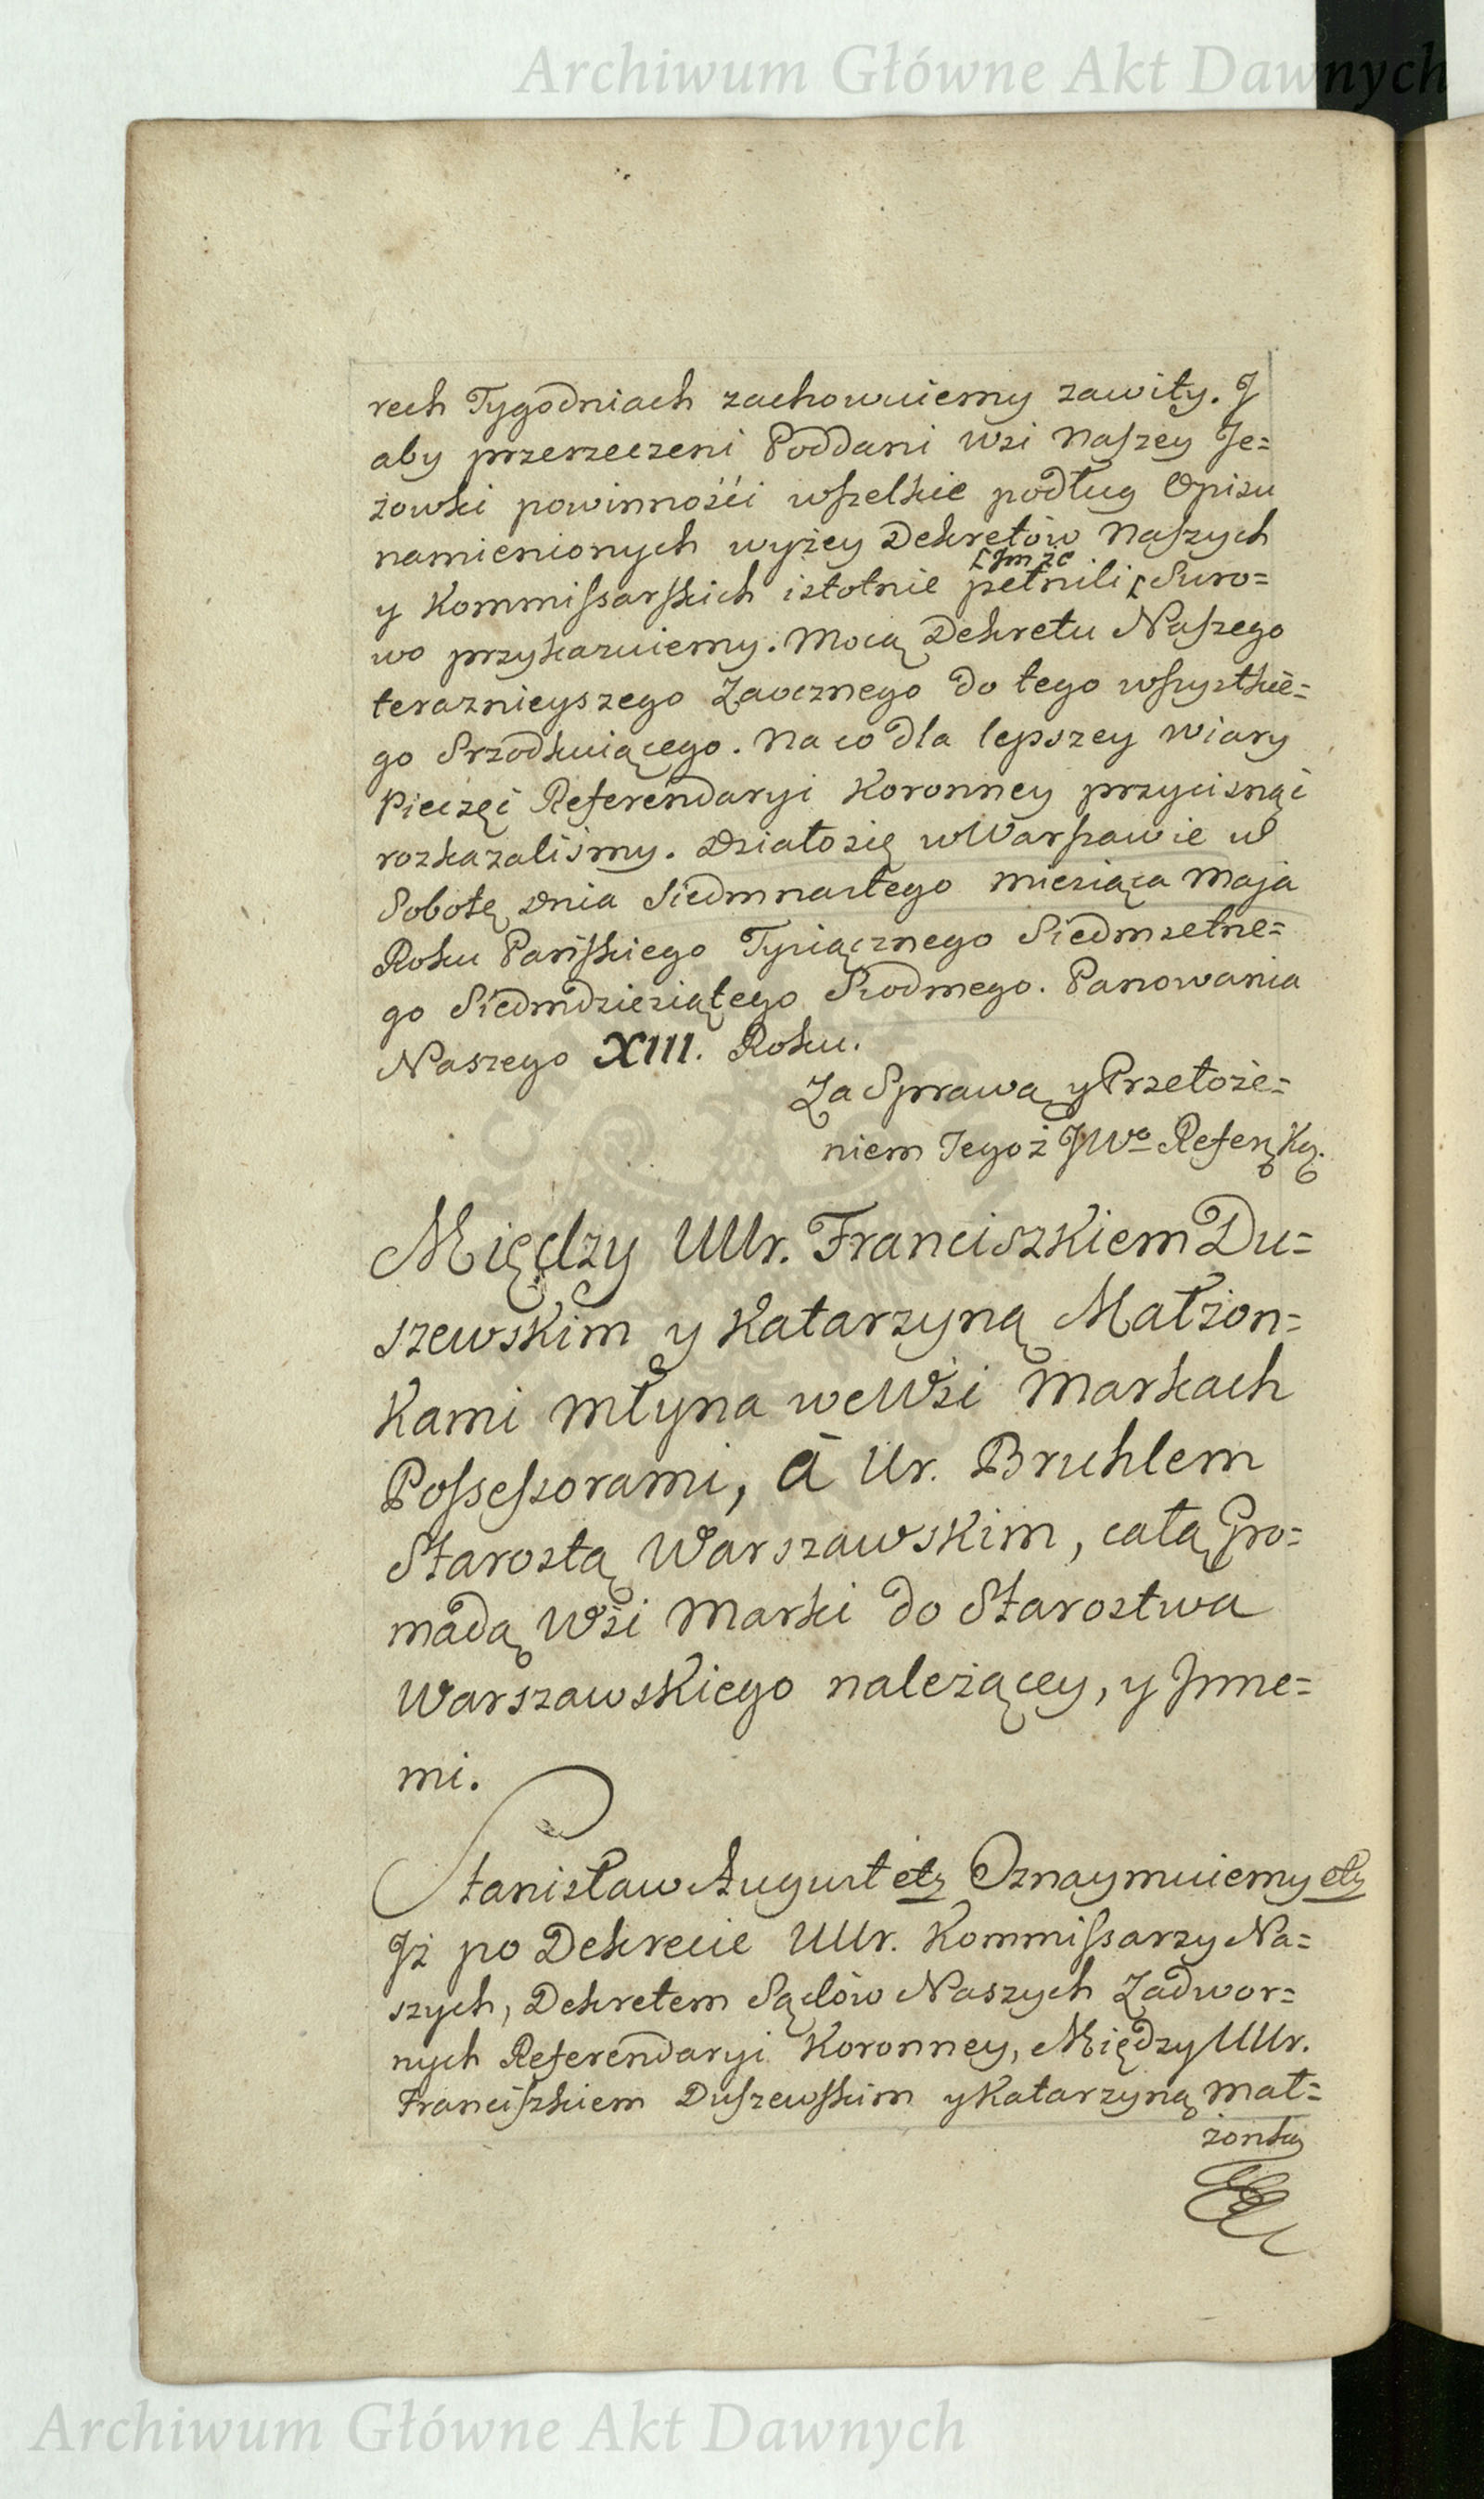 Archiwum Główne Akt Dawnych
rech Tygodniach zachowuiemy zawity. J
aby przerzeczeni Poddani wsi Naszey Je=
żowki powinności wszelkie podług Opisu
namienionych wyżey Dekretow Naszych
[Jmże
y Kommissarskich istotnie pełnili [Suro=
wo przykazuiemy. Mocą Dekretu Naszego
teraznieyszego Zaocznego do tego wszystkie=
go Srzodkuiącego. Na co dla lepszey wiary
Pieczęć Referendaryi Koronney przycisnąć
rozkazaliśmy. Działo się w Warszawie w
Sobotę Dnia Siedmnastego miesiąca Maja
Roku Pańskiego Tysiącznego Siedmsetne=
go Siedmdziesiątego Siodmego. Panowania
Naszego XIII. Roku.
Za Sprawą y Przełoże=
niem Tegoż JWo Referą Kg.
Między UUr. Franciszkiem Du=
szewskim y Katarzyną Małżon=
Kami Młyna we Wsi Markach
Possessorami, à Ur. Bruhlem
Starostą Warszawskim, całą Gro=
madą Wsi Marki do Starostwa
Warszawskiego należącey, y Jnne=
mi.
Stanisław August etz Oznaymuiemy etz
Jż po Dekrecie UUr. Kommissarzy Na=
szych, Dekretem Sądów Naszych Zadwor=
nych Referendaryi Koronney, Między UUr.
Franciszkiem Duszewskim y Katarzyną Mał=
żonką
Archiwum Główne Akt Dawnych